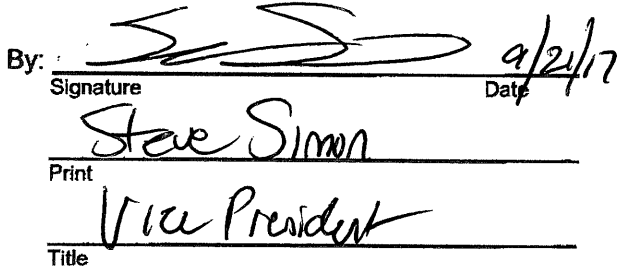 By: 9/21/17
Signature Date
Steve Simon
Print
Vice President
Title